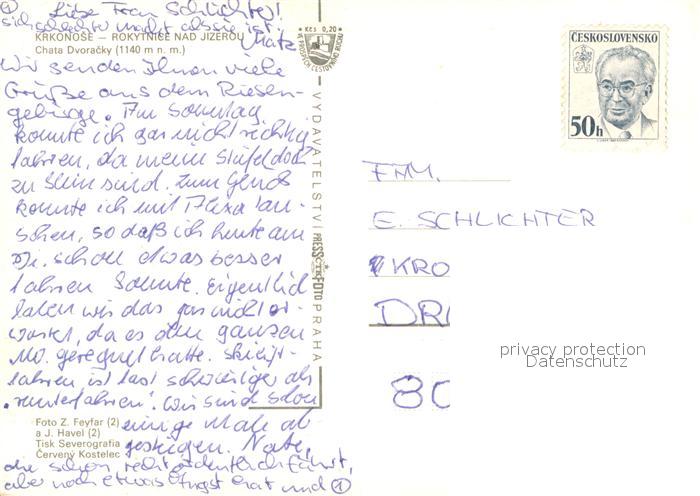 ① Liebe Frau Schlichter!
sich schlechter macht als sie ist.
Matz
KRKONOŠE – ROKYTNICE NAD JIZEROU
Chata Dvoračky (1140 m n. m.)
Wir senden Ihnen viele
Grüße aus dem Riesen-
gebirge. Am Sonntag
konnte ich gar nicht richtig
fahren, da meine Stiefel doch
zu klein sind. Zum Glück
konnte ich mit Alexa tau-
schen, so daß ich heute am
Di. schon etwas besser
fahren konnte. Eigentlich
haben wir das gar nicht er-
wartet, da es den ganzen
Mo. geregnet hatte. Skilift-
fahren ist fast schwieriger als
"runterfahren". Wir sind schon
einige Male ab-
gestiegen. Nate,
die schon recht ordentlich fährt,
aber noch etwas Angst hat und ①
Foto Z. Feyfar (2)
a J. Havel (2)
Tisk Severografia
Červený Kostelec
Kčs 0,20
VYDAVATELSTVÍ PRESSFOTO PRAHA
ČTK
ČESKOSLOVENSKO
50h
FAM.
E. SCHLICHTER
KRO
DR
80
privacy protection
Datenschutz